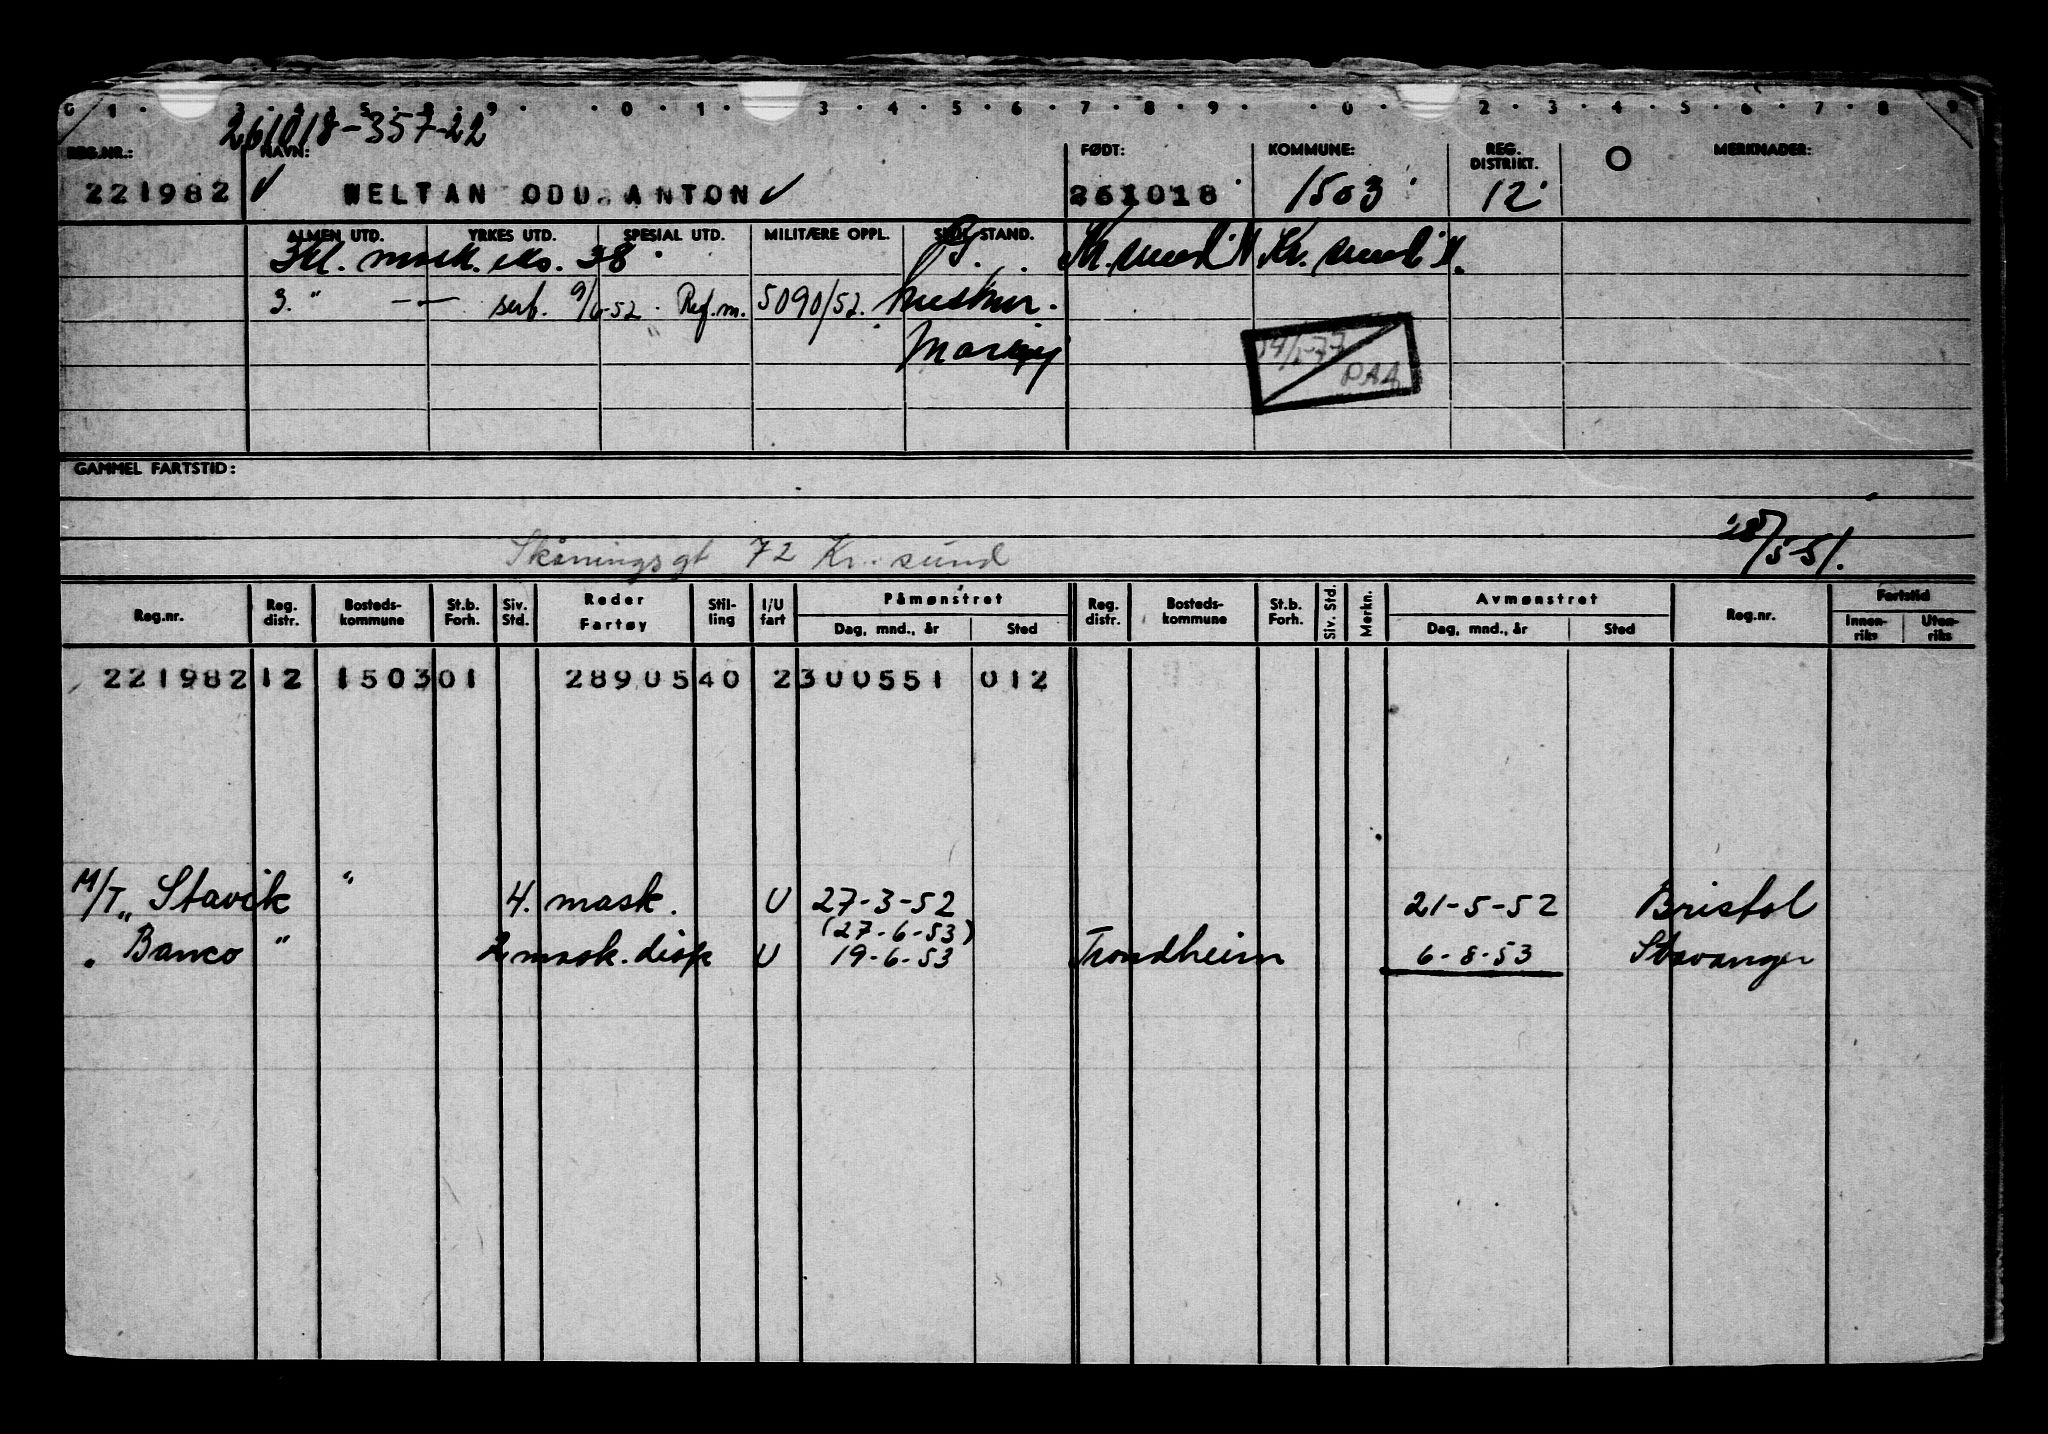 261018-357-22
REG.NR.: NAVN: FØDT: KOMMUNE: REG. DISTRIKT. MERKNADER:
221982 WELTAN ODD ANTON 261018 1503 12
ALMEN UTD. YRKES UTD. SPESIAL UTD. MILITÆRE OPPL. STAND.
3kl. mask. eks. 38 G. Kr. sund N Kr. sund N.
3. " — serf. 9/6-52. Ref. m. 5090/52. hustru.
GAMMEL FARTSTID:
28/5-51.
Skåningsgt 72 Kr. sund
Reg.nr. Reg. distr. Bosteds- kommune St.b. Forh. Siv. Std. Reder Fartøy Stil- ling I/U fart Påmønstret Dag, mnd., år Sted Reg. distr. Bosteds- kommune St.b. Forh. Siv. Std. Merkn. Avmønstret Dag, mnd., år Sted Reg.nr. Fartstid Innen- riks Uten- riks
221982 12 1503 01 28905 40 2 300551 012
M/T „ Stavik " 4. mask. U 27-3-52 21-5-52 Bristol
(27-6-53)
„ Banco " 2 mask. disp U 19-6-53 Trondheim 6-8-53 Stavanger